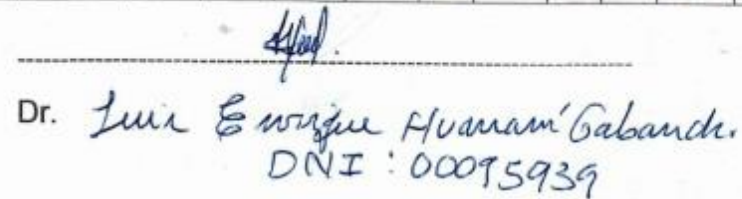 Dr. Luis Enrique Huamaní Gabanch.
DNI : 00095939